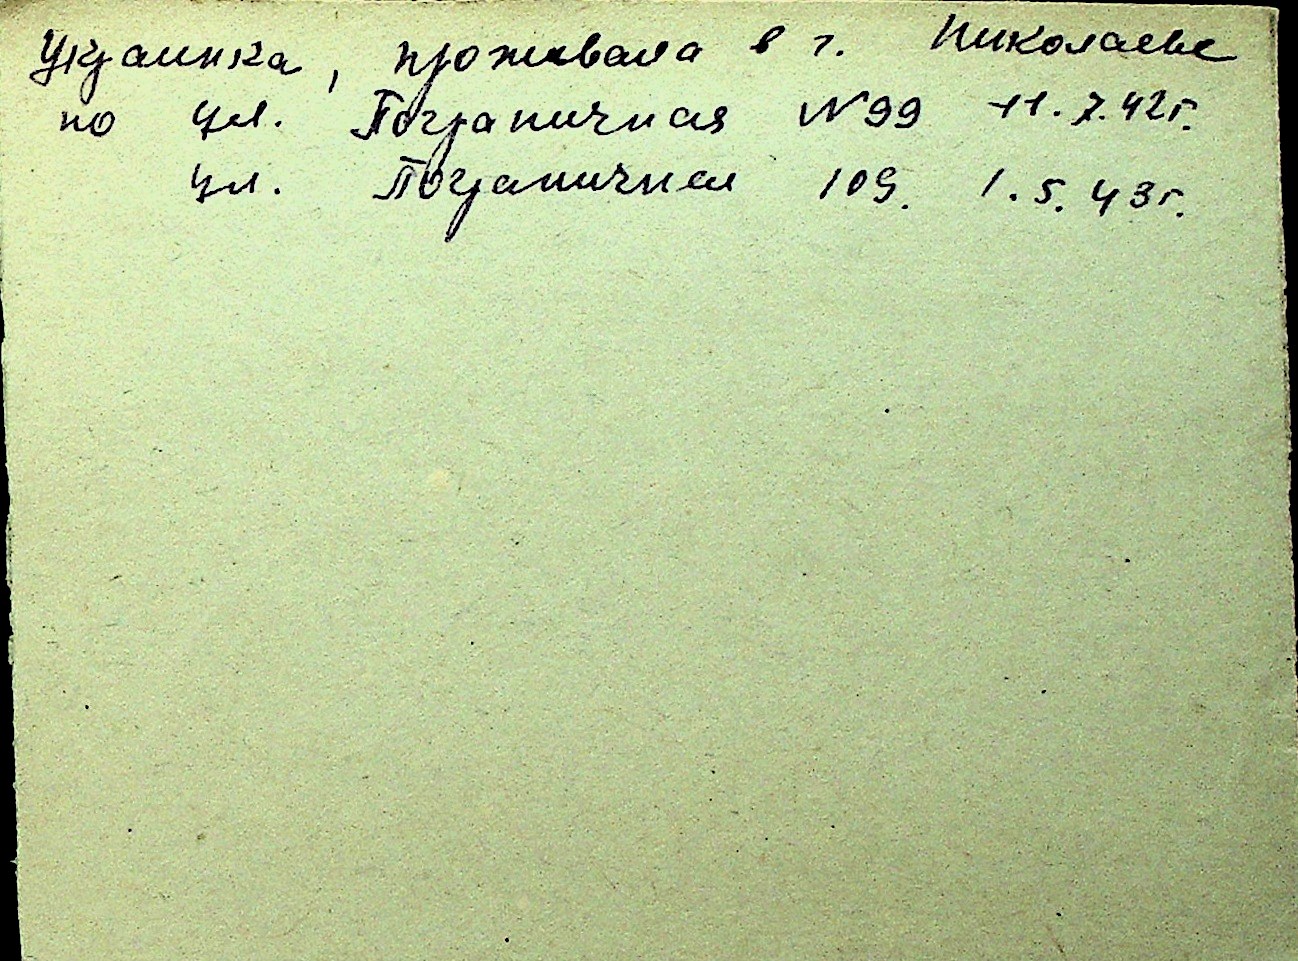 Украинка, проживала в г. Николаеве
по ул. Пограничная №99 11.7.42г.
ул. Пограничная 109. 1.5.43г.